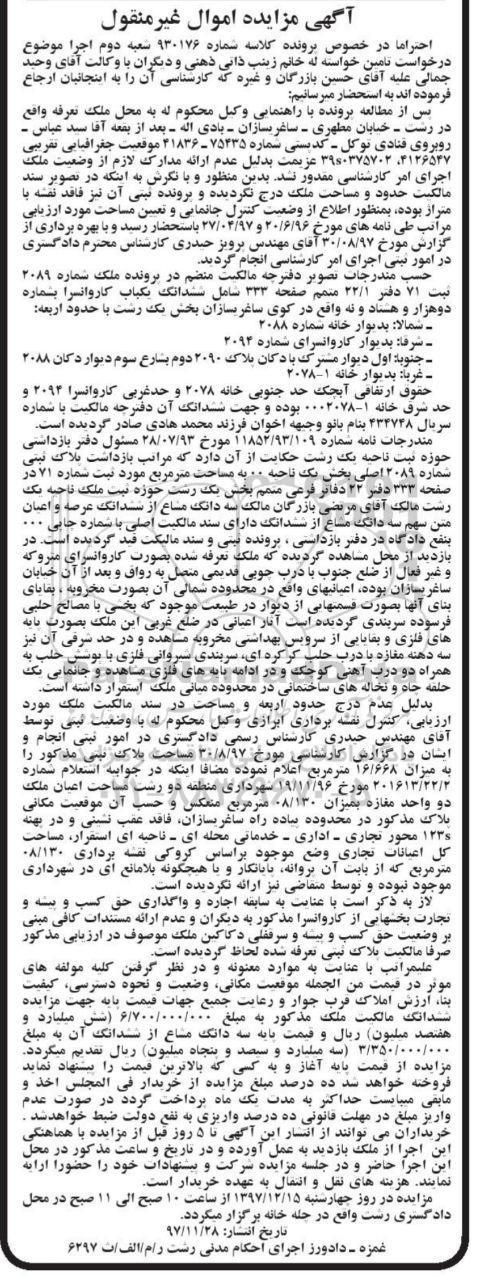 آگهی مزایده اموال غیرمنقول
احتراما در خصوص پرونده کلاسه شماره ۹۳۰۱۷۶ شعبه دوم اجرا موضوع
درخواست تامین خواسته له خانم زینب ذاتی ذهنی و دیگران با وکالت آقای وحید
جمالی علیه آقای حسین بازرگان و غیره که کارشناسی آن را به اینجانبان ارجاع
فرموده اند به استحضار میرسانیم:
پس از مطالعه پرونده با راهنمایی وکیل محکوم له به محل ملک تعرفه واقع
در رشت ـ خیابان مطهری ـ ساغریسازان ـ بادی اله ـ بعد از بقعه آقا سید عباس ـ
روبروی قنادی توکل ـ کدپستی شماره ۷۵۴۳۵ـ۴۱۸۳۶ موقعیت جغرافیایی تقریبی
۴۱۲۶۵۴۷، ۳۹s۰۳۷۵۷۰۲ عزیمت بدلیل عدم ارائه مدارک لازم از وضعیت ملک
اجرای امر کارشناسی مقدور نشد. بدین منظور و با نگرش به اینکه در تصویر سند
مالکیت حدود و مساحت ملک درج نگردیده و پرونده ثبتی آن نیز فاقد نقشه با
متراژ بوده، بمنظور اطلاع از وضعیت کنترل جانمایی و تعیین مساحت مورد ارزیابی
مراتب طی نامه های مورخ ۲۰/۶/۹۶ و ۲۷/۰۴/۹۷ باستحضار رسید و با بهره برداری از
گزارش مورخ ۳۰/۰۸/۹۷ آقای مهندس پرویز حیدری کارشناس محترم دادگستری
در امور ثبتی اجرای امر کارشناسی انجام گردید.
حسب مندرجات تصویر دفترچه مالکیت منضم در پرونده ملک شماره ۲۰۸۹
ثبت ۷۱ دفتر ۲۲/۱ متمم صفحه ۳۳۳ شامل ششدانگ یکباب کاروانسرا بشماره
دوهزار و هشتاد و نه واقع در کوی ساغریسازان بخش یک رشت با حدود اربعه:
ـ شمالا: بدیوار خانه شماره ۲۰۸۸
ـ شرقا: بدیوار کاروانسرای شماره ۲۰۹۴
ـ جنوبا: اول دیوار مشترک با دکان پلاک ۲۰۹۰ دوم بشارع سوم دیوار دکان ۲۰۸۸
ـ غربا: بدیوار خانه ۱-۲۰۷۸
حقوق ارتفاقی آبچک حد جنوبی خانه ۲۰۷۸ و حدغربی کاروانسرا ۲۰۹۴ و
حد شرق خانه ۱-۲۰۷۸... بوده و جهت ششدانگ آن دفترچه مالکیت با شماره
سریال ۴۳۴۷۴۸ بنام بانو وجیهه اخوان فرزند محمد هادی صادر گردیده است.
مندرجات نامه شماره ۱۱۸۵۲/۹۳/۱۰۹ مورخ ۲۸/۰۷/۹۳ مسئول دفتر بازداشتی
حوزه ثبت ناحیه یک رشت حکایت از آن دارد که مراتب بازداشت پلاک ثبتی
شماره ۲۰۸۹ اصلی بخش یک ناحیه ۰۰ به مساحت مترمربع مورد ثبت شماره ۷۱ در
صفحه ۳۳۳ دفتر ۲۲ دفاتر فرعی متمم بخش یک رشت حوزه ثبت ملک ناحیه یک
رشت مالک آقای مرتضی بازرگان مالک سه دانگ مشاع از ششدانگ عرصه و اعیان
متن سهم سه دانگ مشاع از ششدانگ دارای سند مالکیت اصلی با شماره چاپی ۰۰۰
بنفع دادگاه در دفتر بازداشتی، پرونده ثبتی و سند مالیکت قید گردیده است. در
بازدید از محل مشاهده گردیده که ملک تعرفه شده بصورت کاروانسرای متروکه
و غیر فعال از ضلع جنوب با درب چوبی قدیمی متصل به رواق و بعد از آن خیابان
ساغریسازان بوده، اعیانیهای واقع در محدوده شمالی آن بصورت مخروبه، بقایای
بنای آنها بصورت قسمتهایی از دیوار در طبیعت موجود که بخشی با مصالح حلبی
فرسوده سربندی گردیده است آثار اعیانی در ضلع غربی این ملک بصورت پایه
های فلزی و بقایایی از سرویس بهداشتی مخروبه مشاهده و در حد شرقی آن نیز
سه دهنه مغازه با درب حلب کرکره ای، سربندی شیروانی فلزی با پوشش حلب به
همراه دو درب آهنی کوچک و در ادامه پایه های فلزی مشاهده و جانمایی یک
حلقه چاه و نخاله های ساختمانی در محدوده میانی ملک استقرار داشته است.
بدلیل عدم درج حدود اربعه و مساحت در سند مالکیت ملک مورد
ارزیابی، کنترل نقشه برداری ابرازی وکیل محکوم له، با وضعیت ثبتی توسط
آقای مهندس حیدری کارشناس رسمی دادگستری در امور ثبتی انجام و
ایشان در گزارش کارشناسی مورخ ۳۰/۸/۹۷ مساحت پلاک ثبتی مذکور را
به میزان ۱۶/۶۶۸ مترمربع اعلام نموده مضافا اینکه در جوابیه استعلام شماره
۲۰۱۶۱۳/۲۲/۲ مورخ ۱۹/۱۰/۹۶ شهرداری منطقه دو رشت مساحت اعیان ملک
دو واحد مغازه بمیزان ۰۸/۱۳۰ مترمربع منعکس و حسب آن موقعیت مکانی
پلاک مذکور در محدوده پیاده راه ساغریسازان، فاقد عقب نشینی و در پهنه
۱۲۳s محور تجاری ـ اداری ـ خدماتی محله ای ـ ناحیه ای استقرار، مساحت
کل اعیانات تجاری وضع موجود براساس کروکی نقشه برداری ۰۸/۱۳۰
مترمربع که از بابت آن پروانه، پایانکار و یا هیچگونه بلامانع ای در شهرداری
موجود نبوده و توسط متقاضی نیز ارائه نگردیده است.
لاز به ذکر است با عنایت به سابقه اجاره و واگذاری حق کسب و پیشه و
تجارت بخشهایی از کاروانسرا مذکور به دیگران و عدم ارائه مستندات کافی مبنی
بر وضعیت حق کسب و پیشه و سرقفلی دکاکین ملک موصوف در ارزیابی مذکور
صرفا مالکیت پلاک ثبتی تعرفه شده لحاظ گردیده است.
علیمراتب با عنایت به موارد معنونه و در نظر گرفتن کلیه مولفه های
موثر در قیمت من الجمله موقعیت مکانی، وضعیت و نحوه دسترسی، کیفیت
بنا، ارزش املاک قرب جوار و رعایت جمیع جهات قیمت پایه جهت مزایده
ششدانگ مالکیت ملک مذکور به مبلغ ۶/۷۰۰/۰۰۰/۰۰۰ (شش میلیارد و
هفتصد میلیون) ریال و قیمت پایه سه دانگ مشاع از ششدانگ آن به مبلغ
۳/۳۵۰/۰۰۰/۰۰۰ (سه میلیارد و سیصد و پنجاه میلیون) ریال تقدیم میگردد.
مزایده از قیمت پایه آغاز و به کسی که بالاترین قیمت را پیشنهاد نماید
فروخته خواهد شد ده درصد مبلغ مزایده از خریدار فی المجلس اخذ و
مابقی میبایست حداکثر به مدت یک ماه پرداخت گردد در صورت عدم
واریز مبلغ در مهلت قانونی ده درصد واریزی به نفع دولت ضبط خواهدشد.
خریداران می توانند از انتشار این آگهی تا ۵ روز قبل از مزایده با هماهنگی
این اجرا از ملک بازدید به عمل آورده و در تاریخ و ساعت مذکور در محل
این اجرا حاضر و در جلسه مزایده شرکت و پیشنهادات خود را حضورا ارایه
نمایند. هزینه های نقل و انتقال به عهده خریدار است.
مزایده در روز چهارشنبه ۱۳۹۷/۱۲/۱۵ از ساعت ۱۰ صبح الی ۱۱ صبح در محل
دادگستری رشت واقع در چله خانه برگزار میگردد.
تاریخ انتشار: ۹۷/۱۱/۲۸
غمزه ـ دادورز اجرای احکام مدنی رشت ر/م/الف/ث ۶۲۹۷